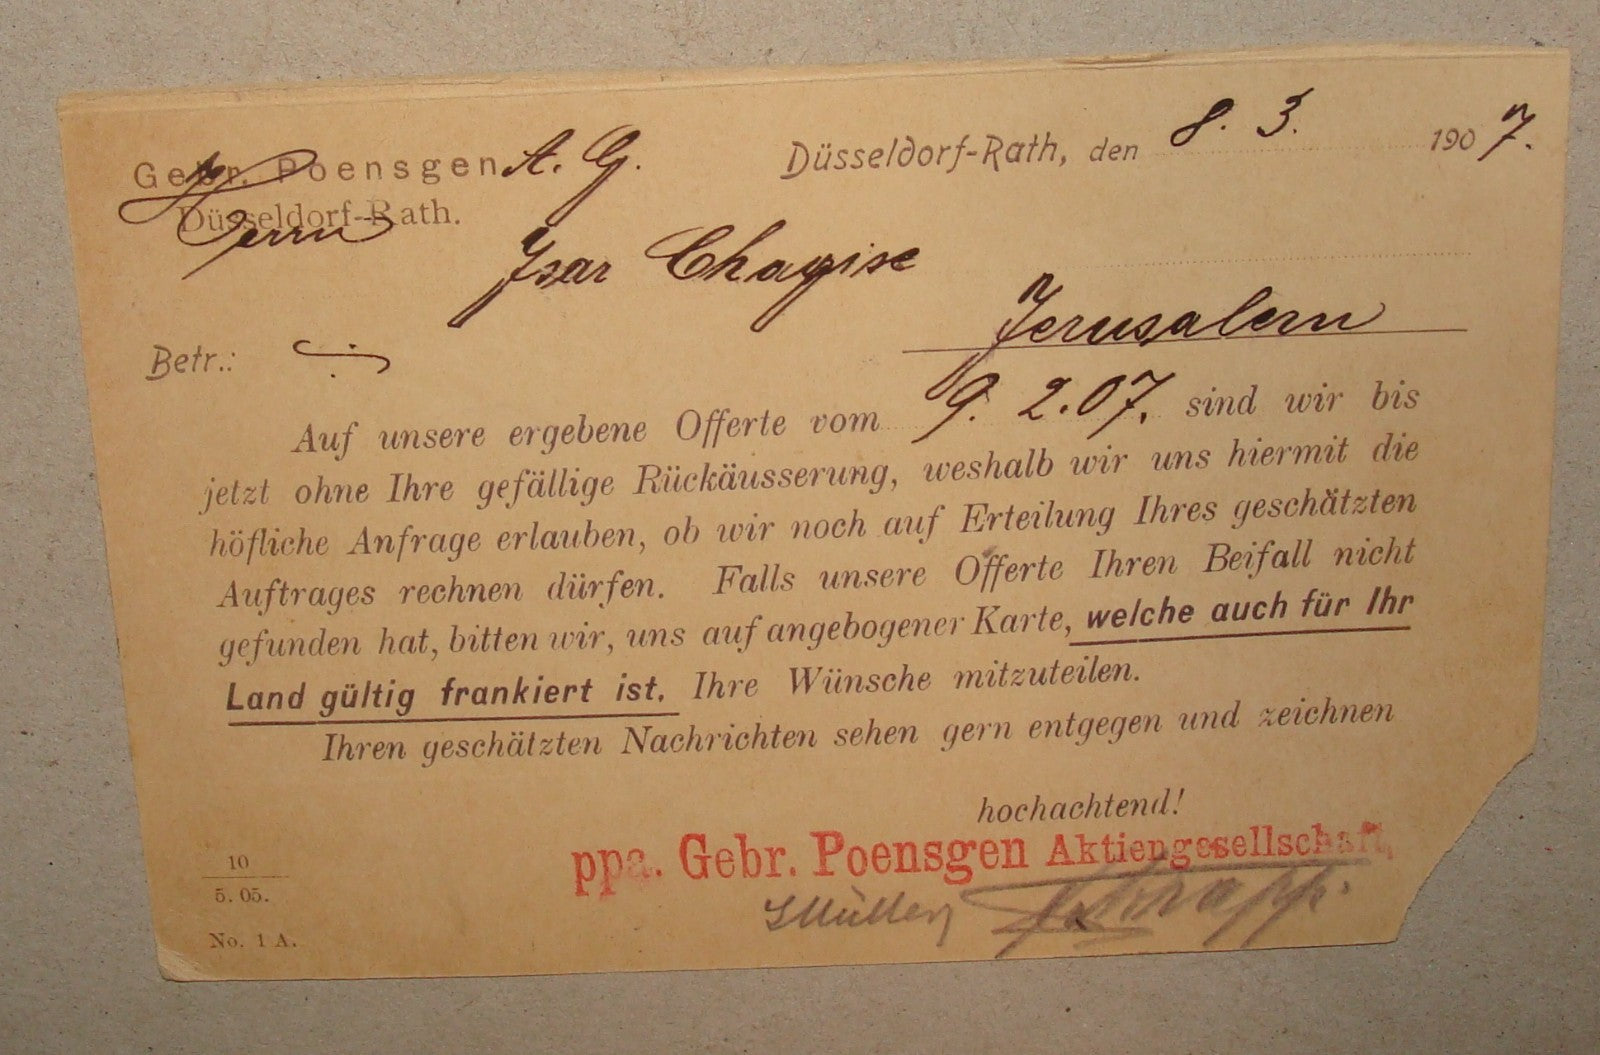 Gebr. Poensgen A. G.
Düsseldorf-Rath.
Düsseldorf-Rath, den 8. 3. 1907.
Herrn
Isar Chagise
Jerusalem
Betr.:
Auf unsere ergebene Offerte vom 9. 2. 07. sind wir bis
jetzt ohne Ihre gefällige Rückäusserung, weshalb wir uns hiermit die
höfliche Anfrage erlauben, ob wir noch auf Erteilung Ihres geschätzten
Auftrages rechnen dürfen. Falls unsere Offerte Ihren Beifall nicht
gefunden hat, bitten wir, uns auf angebogener Karte, welche auch für Ihr
Land gültig frankiert ist, Ihre Wünsche mitzuteilen.
Ihren geschätzten Nachrichten sehen gern entgegen und zeichnen
hochachtend!
ppa. Gebr. Poensgen Aktiengesellschaft,
Müller
10
5. 05.
No. 1 A.